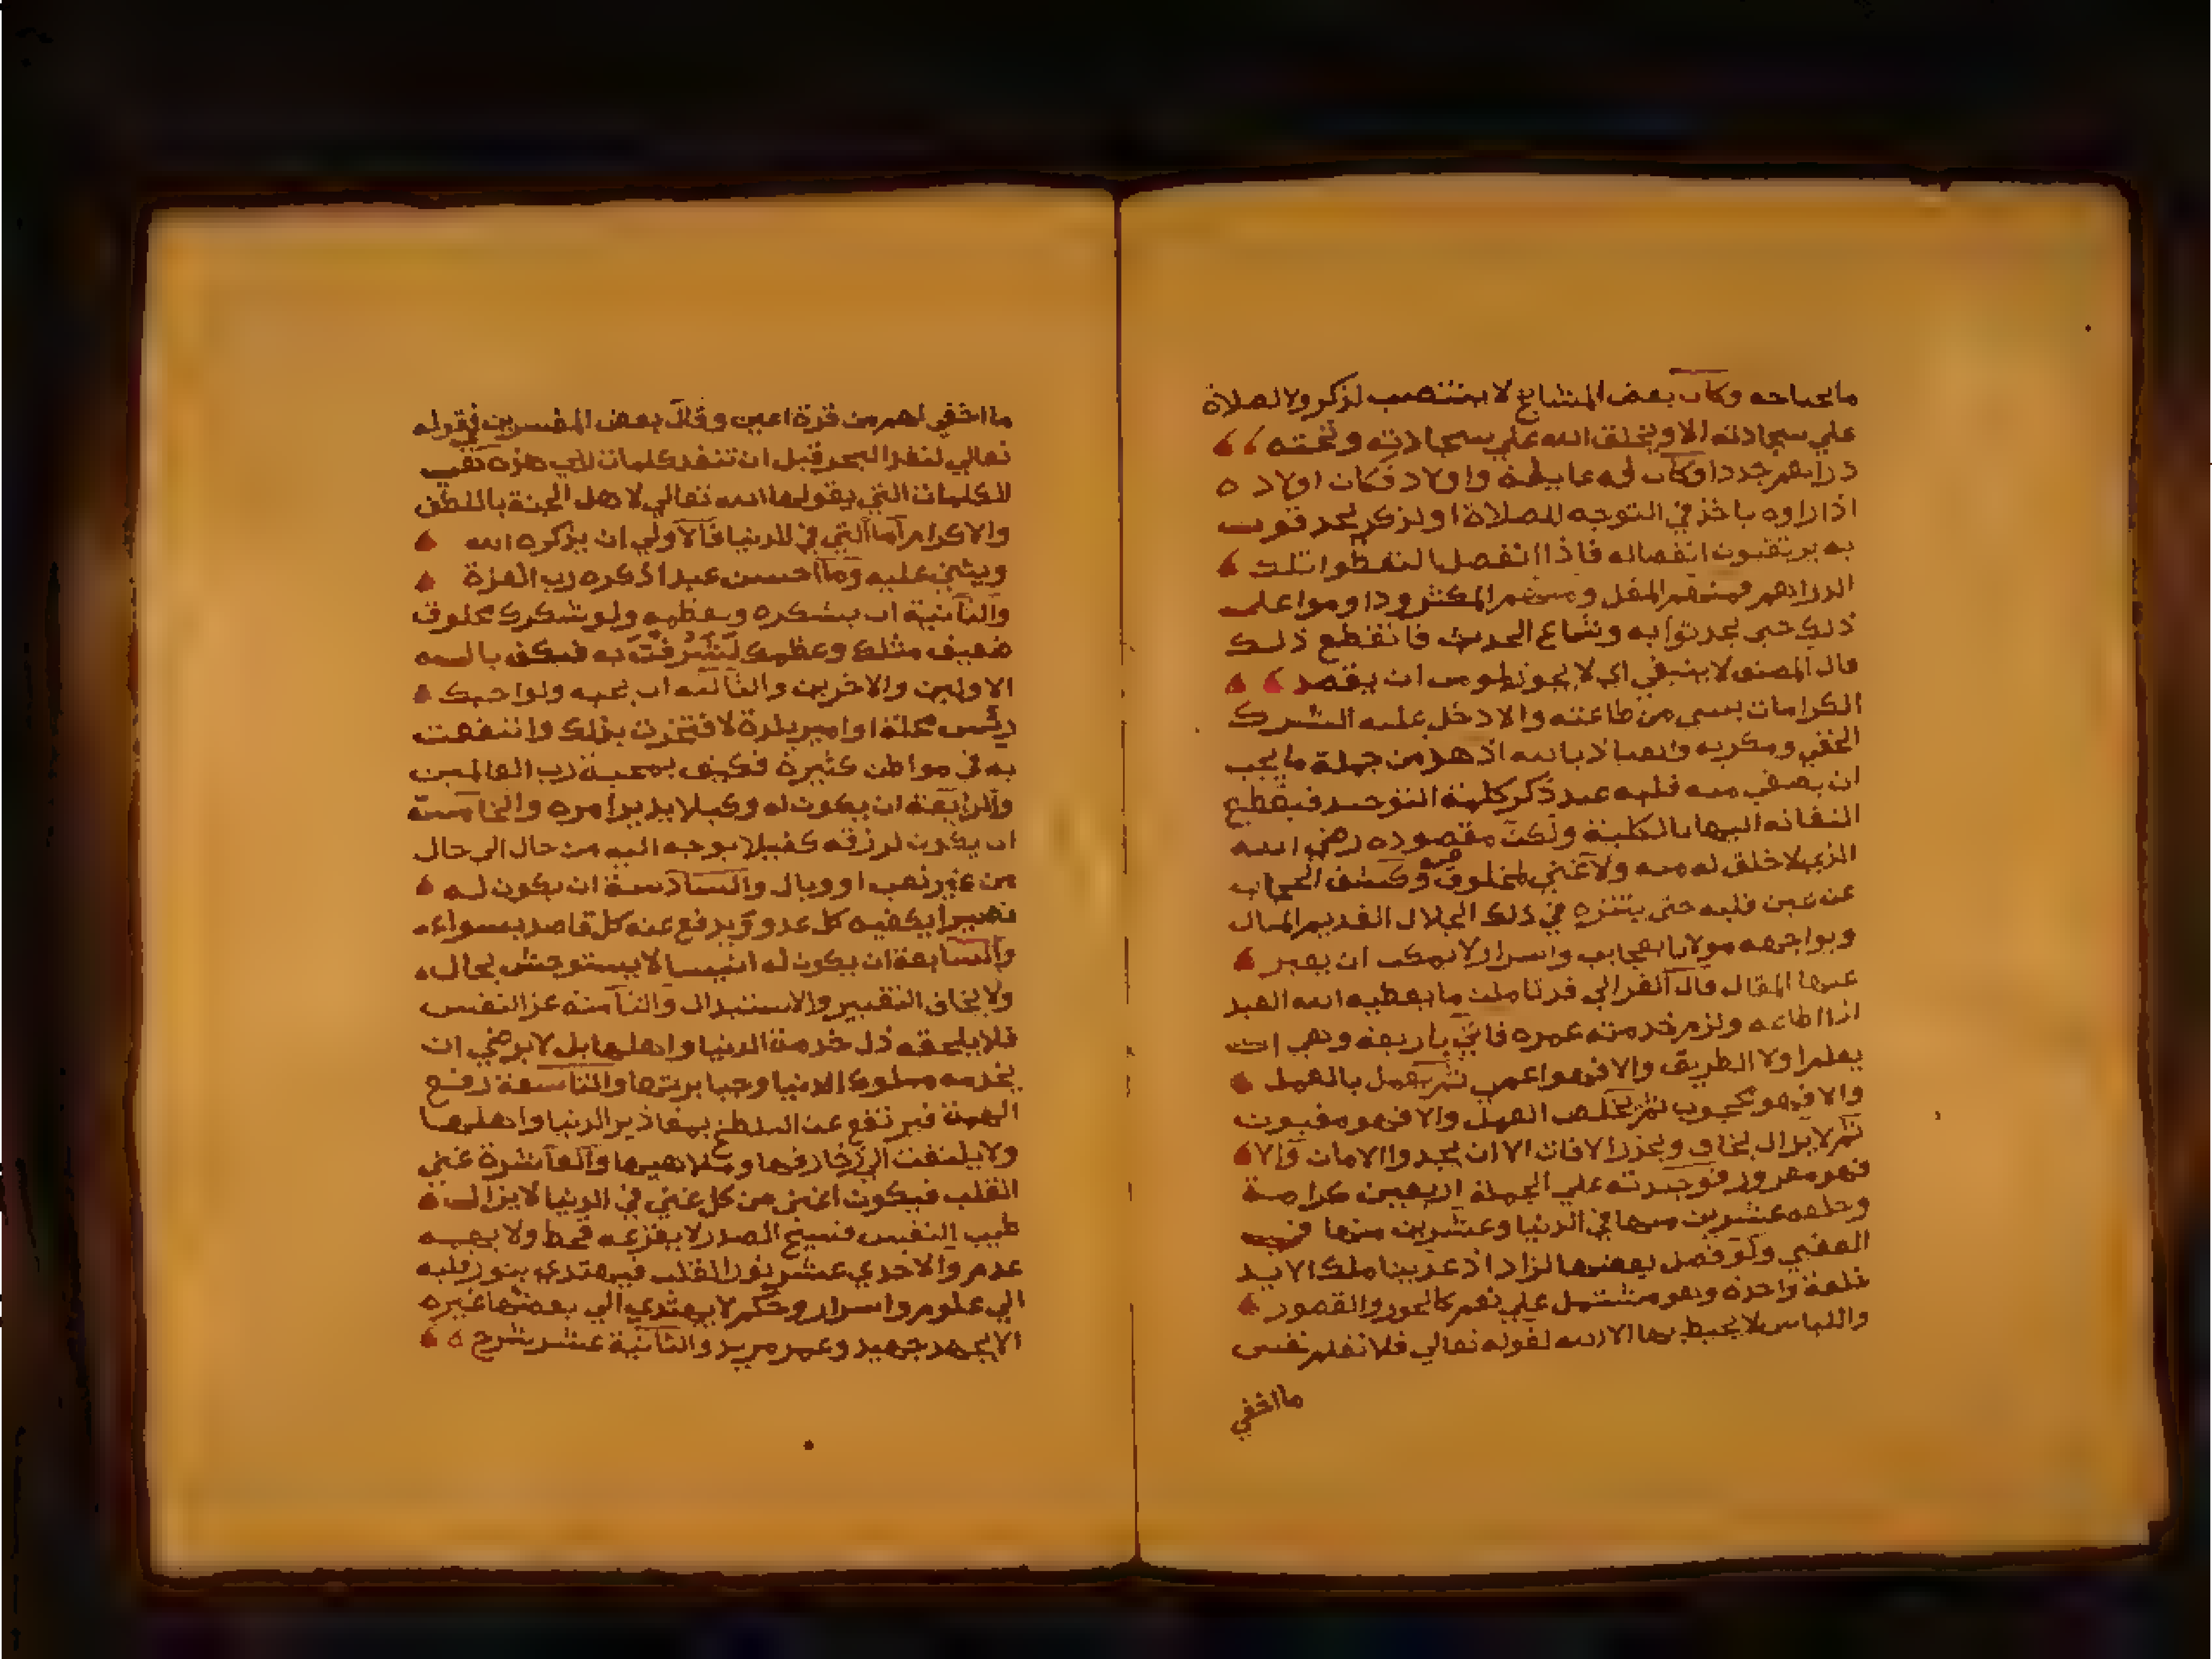 ما يحتاجه وكان بعض المشايخ لا ينتصب لذكر ولا لصلاة
علي سجادته الا ويخلق الله علي سجادته وتحته
دراهم جددا وكان له عايلة واولاد فكان اولاد ه
اذا راوه ياخذ في التوجه للصلاة او لذكر
به يرتقبون انفصاله فاذا انفصل التقطوا تلك
الدراهم فمنهم المقل ومنهم المكثر وداوموا علي
ذلك حتي تحدثوا به وشاع الحديث فانقطع ذلك
قال المصنف لا ينبغي اي لا يجوز ان يقصد
الكرامات بشي من طاعته والا دخل عليه الشرك
الخفي ومكر به والعياذ بالله اذ هو من جملة ما يجب
ان يصفي منه قلبه عند ذكر كلمة التوحيد فيقطع
التفاته اليها بالكلية وليكن مقصوده رضي الله
الذي لا خلق له منه ولا غني لمخلوق عنه وكشف الحجاب
عن عين قلبه حتي يتنزه في ذلك الجلال القديم المثال
ويواجهه مولانا بعجايب واسرار لا يمكن ان يعبر
عنها المقال قال الغزالي قد تاملت ما يعطيه الله العبد
اذا اطاعه ولزم خدمته عمره فاني باربعة وهي ان
يعلم اولا الطريق والا فهو اعمي ثم يعمل بالعمل
والا فهو محجوب ثم يخلص العمل والا فهو مغبون
ثم لا يزال يخاف ويحذر الافات الا ان يجد الامان والا
فهو مغرور فوجدته علي الجملة اربعين كرامة
وخلعه عشرين منها في الدنيا وعشرين منها في
العقبي ولو فصل بعضها لزاد اذ عد بينا ملك الابد
خلعة واحدة وهو مشتمل علي نعم كالحور والقصور
واللباس لا يحيط بها الا الله لقوله تعالي فلا تعلم نفس
ما اخفي
ما اخفي لهم من قرة اعين وقال بعض المفسرين في قوله
تعالي لنفد البحر قبل ان تنفد كلمات ربي هذه هي
الكلمات التي يقولها الله تعالي لاهل الجنة باللطف
والاكرام اما التي في الدنيا فالاولي ان يذكره الله
ويثني عليه وما احسن عبدا ذكره رب العزة
والثانية ان يشكره ويعظمه ولو شكرك مخلوق
ضعيف مثلك وعظمك لتشرفت به فكيف باله
الاولين والاخرين والثالثة ان يحبه ولو احبك
رئيس محلة او امير بلدة لافتخرت بذلك وانتفعت
به في مواطن كثيرة فكيف بمحبة رب العالمين
والرابعة ان يكون له وكيلا يدبر امره والخامسة
ان يكون لرزقه كفيلا يوجه اليه من حال الي حال
من غير تعب او وبال والسادسة ان يكون له
نصيرا يكفيه كل عدو ويدفع عنه كل قاصد بسواء
والسابعة ان يكون له انيسا لا يستوحش بحال
ولا يخاف التغيير والاستبدال والثامنة عز النفس
فلا يلحقه ذل خدمة الدنيا واهلها بل لا يرضي ان
يخدمه ملوك الدنيا وجبابرتها والتاسعة رفع
الهمة فيرتفع عن التلطخ بمقاذير الدنيا واهلها
ولا يلتفت الي زخارفها وملاهيها والعاشرة غني
القلب فيكون اغني من كل غني في الدنيا لا يزال
طيب النفس فسيح الصدر لا يفزعه قحط ولا يهمه
عدم والاحدي عشر نور القلب فيهتدي بنور قلبه
الي علوم واسرار وحكم لا يهتدي الي بعضها غيره
الا بجهد جهيد وعمر مديد والثانية عشر شرح